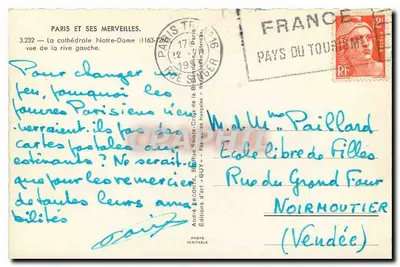 PARIS ET SES MERVEILLES.
3.232 — La cathédrale Notre-Dame (1163-1260)
vue de la rive gauche.
Pour changer un
peu, pourquoi les
jeunes Parisiens n'en-
verraient ils pas des
cartes postales aux
estivants? Ne serait-ce
que pour les remercier
de toutes leurs ama-
bilités
PARIS
FRANCE
PAYS DU TOURISME
RF
M. et Mme Paillard
Ecole libre de Filles
Rue du Grand Four
NOIRMOUTIER
(Vendée)
Editions d'art "GUY"
PHOTO
VERITABLE